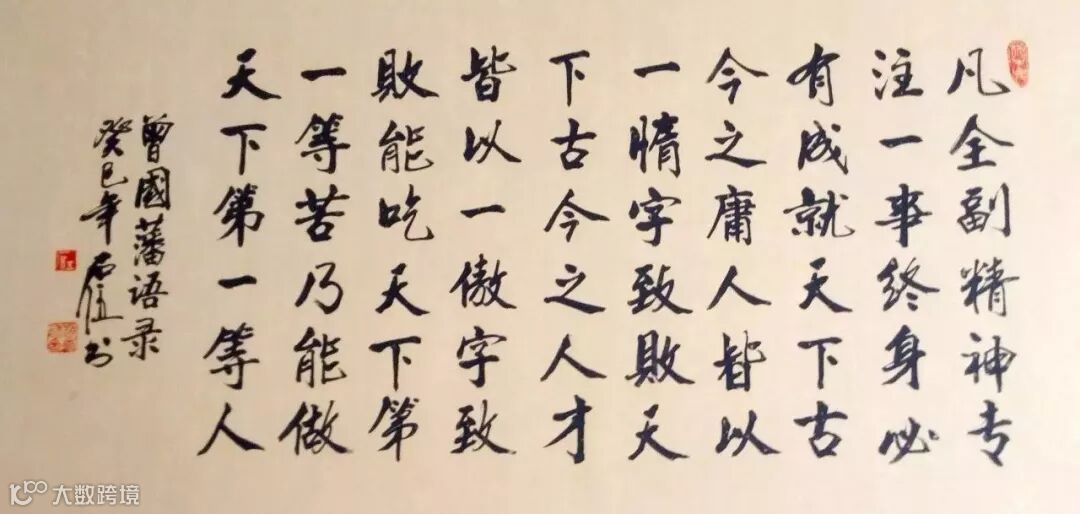 凡全副精神专
注一事终身必
有成就天下古
今之庸人皆以
一惰字致败天
下古今之人才
皆以一傲字致
败能吃天下第
一等苦乃能做
天下第一等人
曾國藩语录
癸巳年石伍书
大数跨境